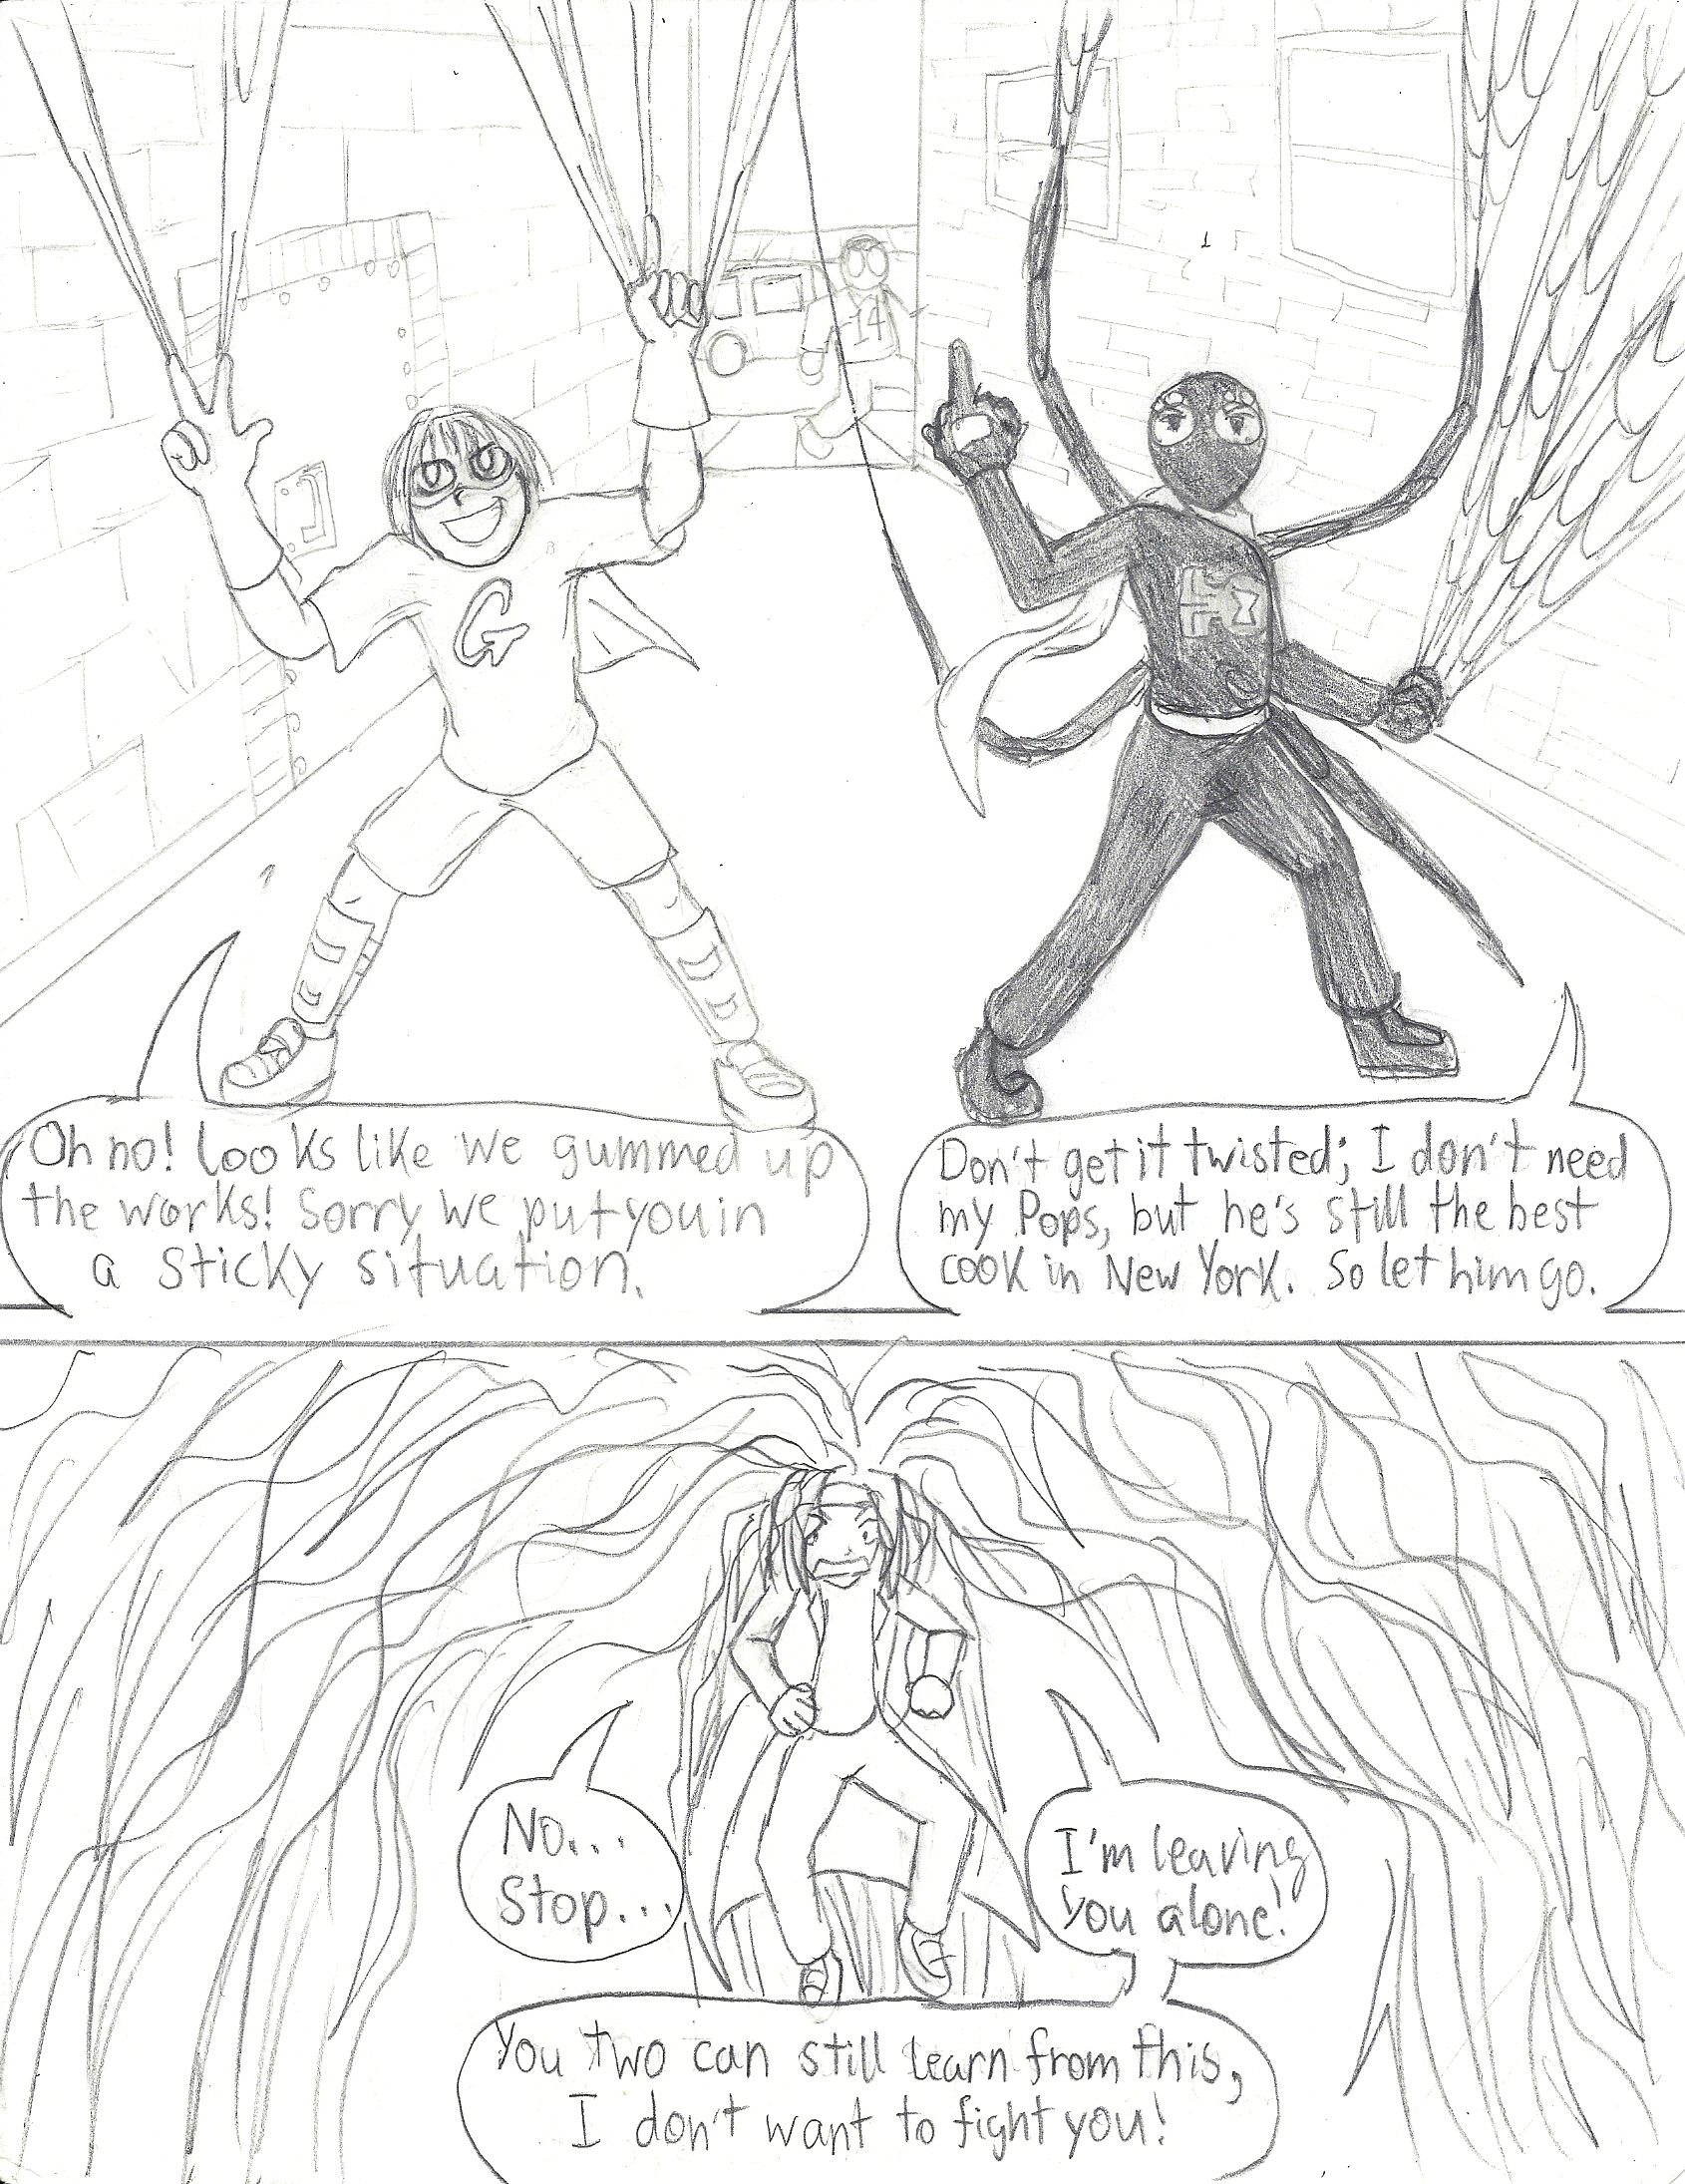 14
G
Oh no! looks like we gummed up
the works! Sorry we put you in
a sticky situation.
Don't get it twisted; I don't need
my Pops, but he's still the best
cook in New York. So let him go.
No...
Stop...
I'm leaving
you alone!
You two can still learn from this,
I don't want to fight you!